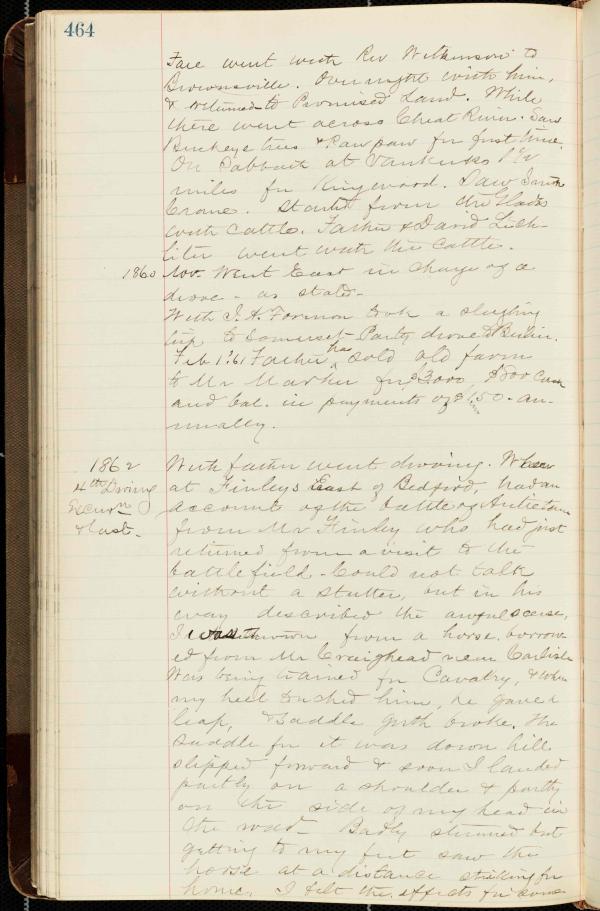 464
Face went with Rev Wilkinson to
Brownsville. Over night with him,
& returned to Promised Land. While
there went across Cheat River. Saw
Buckeye trees & Pawpaw for first time.
On Sabbath at
miles fr Kingwood. Saw Smith
Crane. Started from the Glades
with cattle. Father & David Lich-
liter went with the cattle.
1860 Nov. Went East in charge of a
drove - as stated -
With J. A. Formon took a sleighing
trip to Somerset - Party drove to Berlin.
Feb 1. '61 Father has sold old farm
to Mr Marker for $3,000, $800 Cash
and bal. in payments of $150 - an-
nually.
1862
4th Droving
Excurn
& last -
With father went droving. When
at Finleys East of Bedford, had an
account of the battle of Antietam
from Mr Finley who had just
returned from a visit to the
battlefield - Could not talk
without a stutter, but in his
way described the awful scene.
I was thrown from a horse, borrow-
ed from Mr Craighead near Carlisle
Was being trained for Cavalry, & when
my heel touched him, he gave a
leap, & Saddle girth broke. The
saddle for it was down hill
slipped forward & soon I landed
partly on a shoulder & partly
on the side of my head in
the road - Badly stunned but
getting to my feet saw the
horse at a distance striking for
home. I felt the effects for some